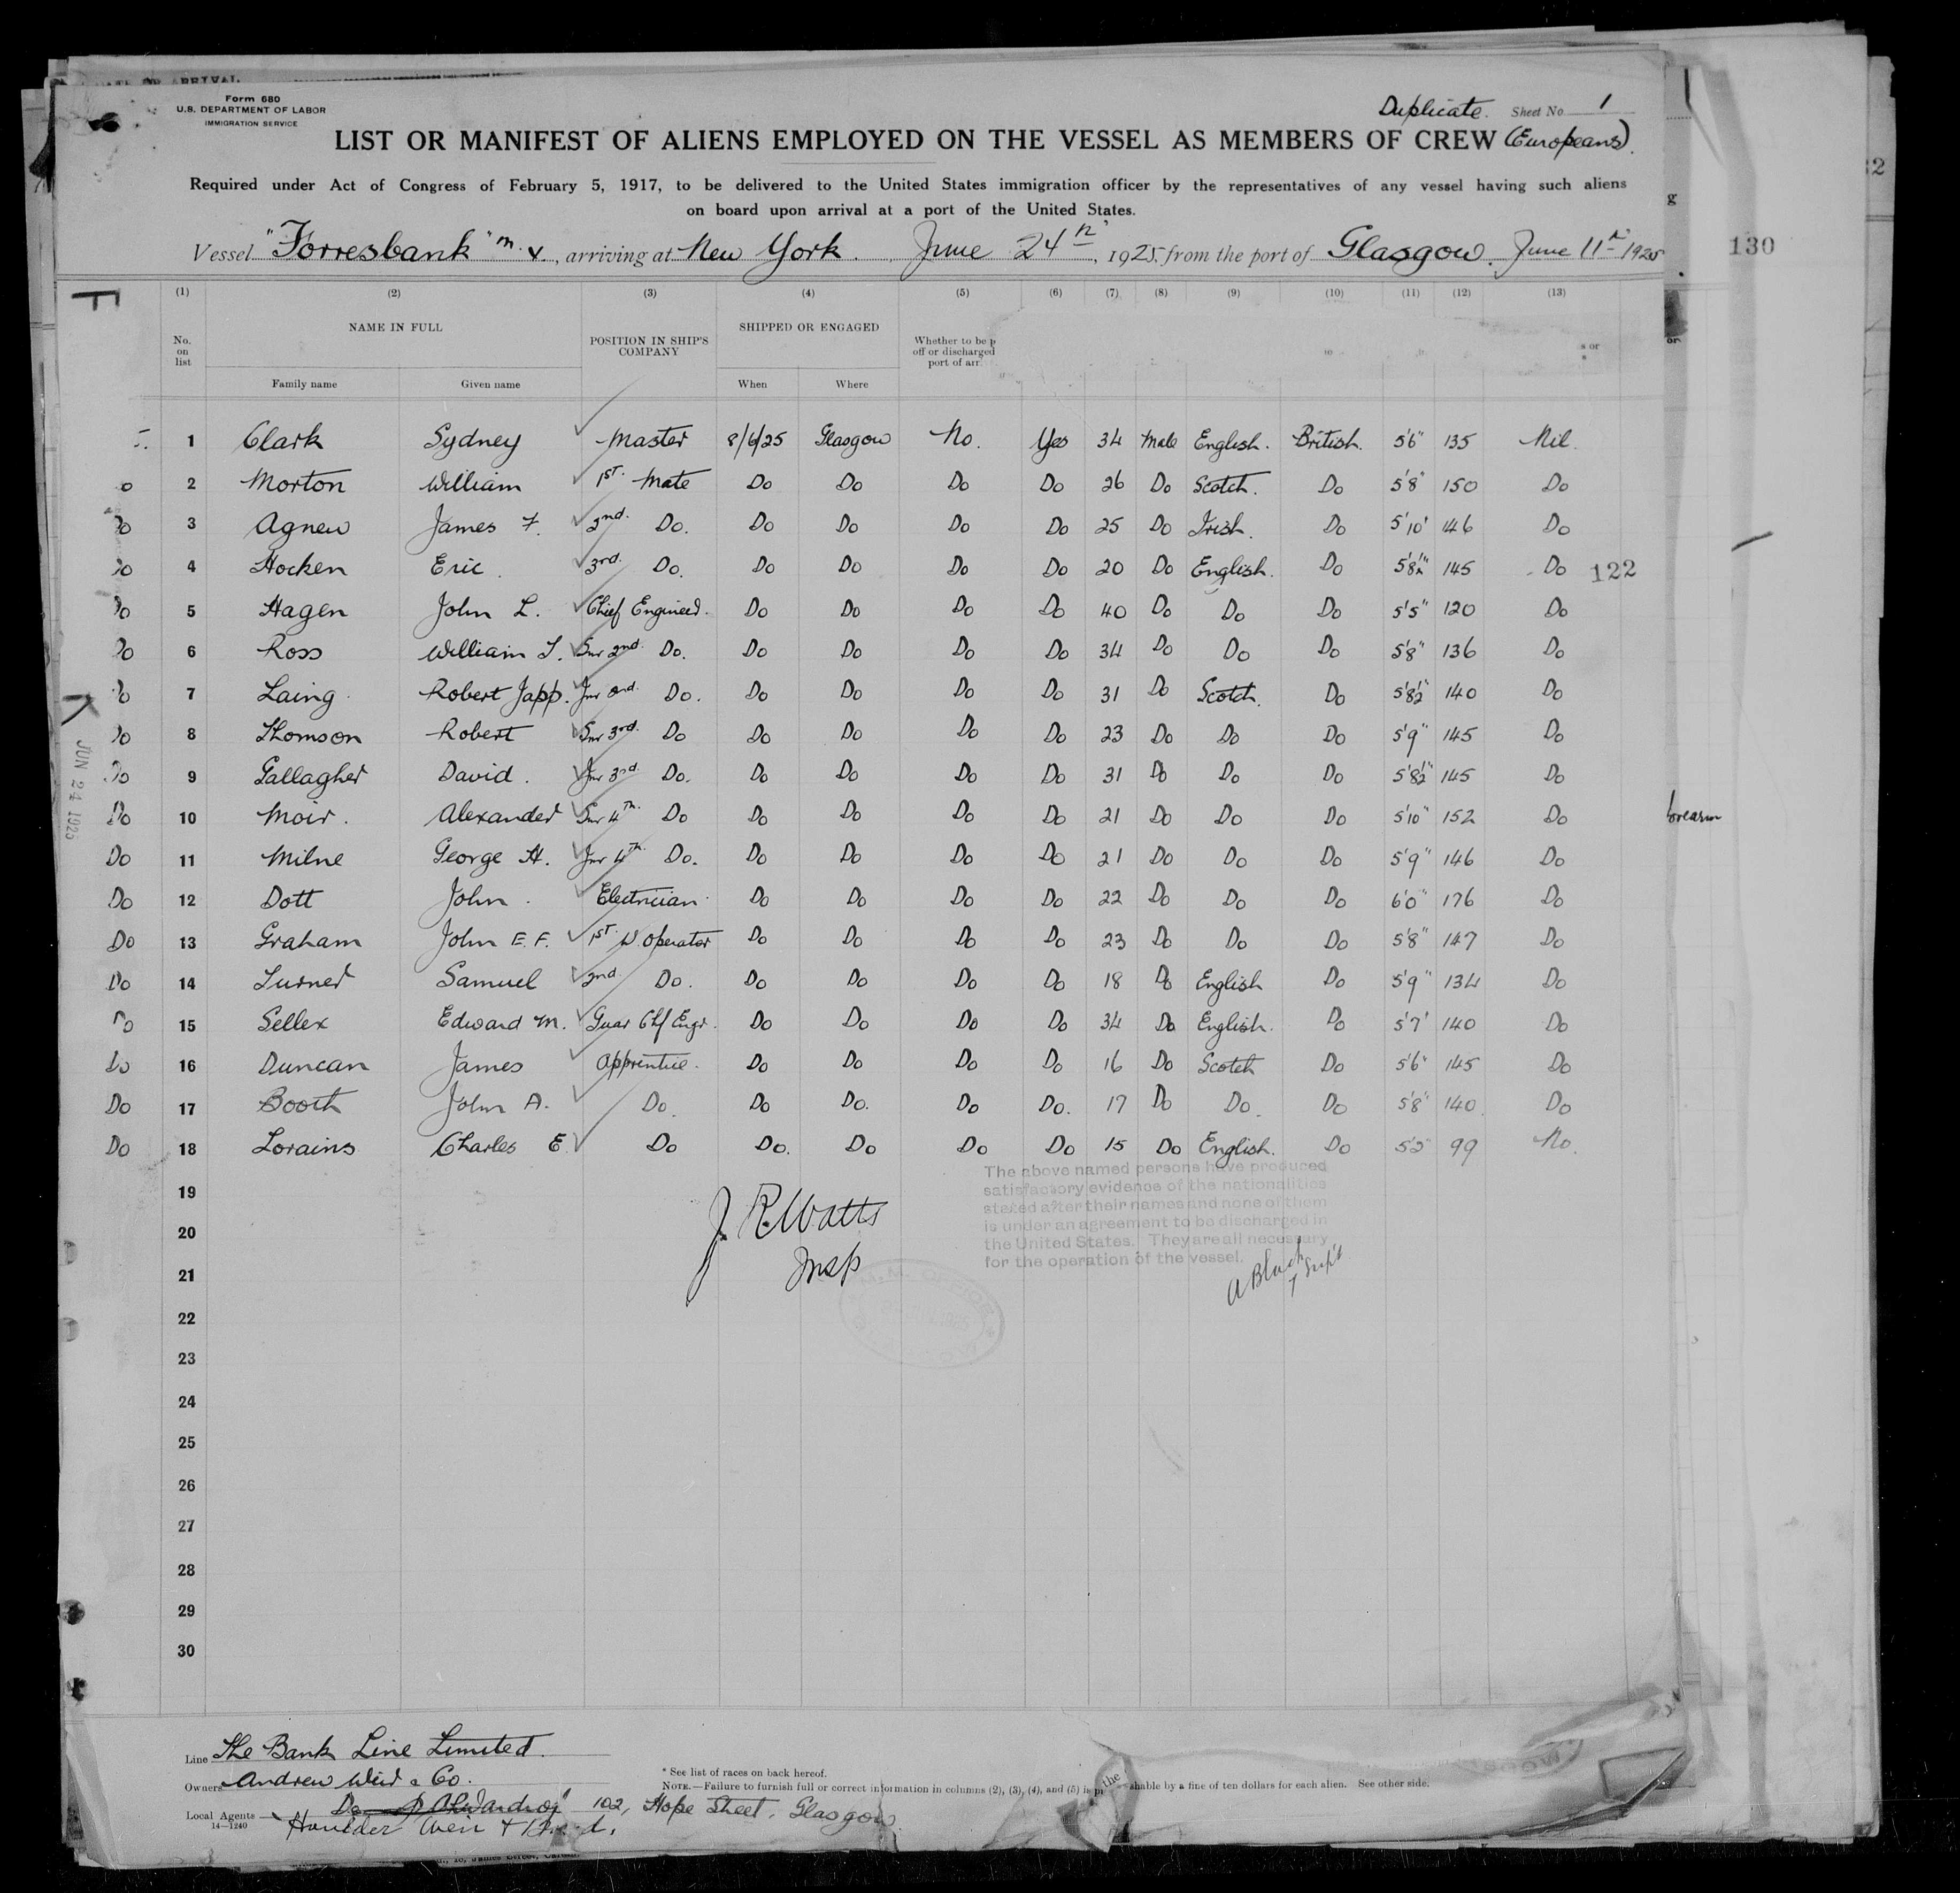 Form 680
U.S. DEPARTMENT OF LABOR
IMMIGRATION SERVICE
Duplicate. Sheet No. 1
LIST OR MANIFEST OF ALIENS EMPLOYED ON THE VESSEL AS MEMBERS OF CREW (Europeans).
Required under Act of Congress of February 5, 1917, to be delivered to the United States immigration officer by the representatives of any vessel having such aliens
on board upon arrival at a port of the United States.
Vessel "Forresbank" m.v., arriving at New York. June 24th, 1925, from the port of Glasgow. June 11th 1925
130
(1) (2) (3) (4) (5) (6) (7) (8) (9) (10) (11) (12) (13)
No. on list NAME IN FULL POSITION IN SHIP'S COMPANY SHIPPED OR ENGAGED Whether to be off or discharged port of arr
Family name Given name When Where
1 Clark Sydney Master 8/6/25 Glasgow No. Yes 34 Male English. British. 5'6" 135 Nil.
2 Morton William 1st. Mate Do Do Do Do 26 Do Scotch. Do 5'8" 150 Do
3 Agnew James F. 2nd. Do. Do Do Do Do 25 Do Irish. Do 5'10" 146 Do
4 Hocken Eric. 3rd. Do. Do Do Do Do 20 Do English. Do 5'8½" 145 Do 122
5 Hagen John L. Chief Engineer. Do Do Do Do 40 Do Do Do 5'5" 120 Do
6 Ross William T. Snr 2nd. Do. Do Do Do Do 34 Do Do Do 5'8" 136 Do
7 Laing. Robert Japp. Jnr 2nd. Do. Do Do Do Do 31 Do Scotch. Do 5'8½" 140 Do
8 Thomson Robert Snr 3rd. Do Do Do Do Do 23 Do Do Do 5'9" 145 Do
9 Gallagher David. Jnr 3rd. Do. Do Do Do Do 31 Do Do Do 5'8½" 145 Do
Do 10 Moir. Alexander Snr 4th. Do Do Do Do Do 21 Do Do Do 5'10" 152 Do
Do 11 Milne George H. Jnr 4th. Do. Do Do Do Do 21 Do Do Do 5'9" 146 Do
Do 12 Dott John. Electrician. Do Do Do Do 22 Do Do Do 6'0" 176 Do
Do 13 Graham John E. F. 1st. W. Operator Do Do Do Do 23 Do Do Do 5'8" 147 Do
Do 14 Turner Samuel 2nd. Do. Do Do Do Do 18 Do English Do 5'9" 134 Do
15 Sellex Edward M. Guar Chf Engr. Do Do Do Do 34 Do English. Do 5'7" 140 Do
Do 16 Duncan James Apprentice. Do Do Do Do 16 Do Scotch Do 5'6" 145 Do
Do 17 Booth John A. Do. Do Do. Do Do. 17 Do Do. Do 5'8" 140 Do
Do 18 Lorains Charles E. Do Do. Do Do Do 15 Do English. Do 5'2" 99 No.
JUN 24 1925
19
20
21
22
23
24
25
26
27
28
29
30
The above named persons have produced
satisfactory evidence of the nationalities
stated after their names and none of them
is under an agreement to be discharged in
the United States. They are all necessary
for the operation of the vessel.
J. R. Watts
Insp
Line The Bank Line Limited.
Owners Andrew Weir & Co.
Local Agents 102, Hope Street, Glasgow.
14—1240 Houlder Weir &
* See list of races on back hereof.
NOTE.—Failure to furnish full or correct information in columns (2), (3), (4), and (5) is shable by a fine of ten dollars for each alien. See other side.